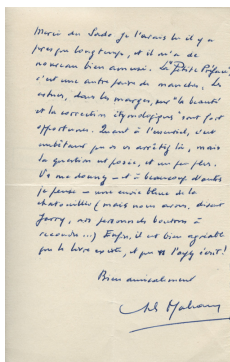 Merci du Sade. Je l'avais lu il y a
presque longtemps, et il m'a de
nouveau bien amusé. La Petite Préface
c'est une autre paire de manches. Les
notes, dans les marges, sur "la beauté
et la correction étymologique" sont fort
opportunes. Quant à l'essentiel, c'est
ambitieux, mais
la question est posée, et un peu plus.
à beaucoup d'autres
je pense une envie bleue de la
chatouiller (mais nous avons, disait
Jarry, nos personnels boutons à
recoudre...) Enfin, il est bien agréable
que le livre existe, et que vous l'ayez écrit!
Bien amicalement